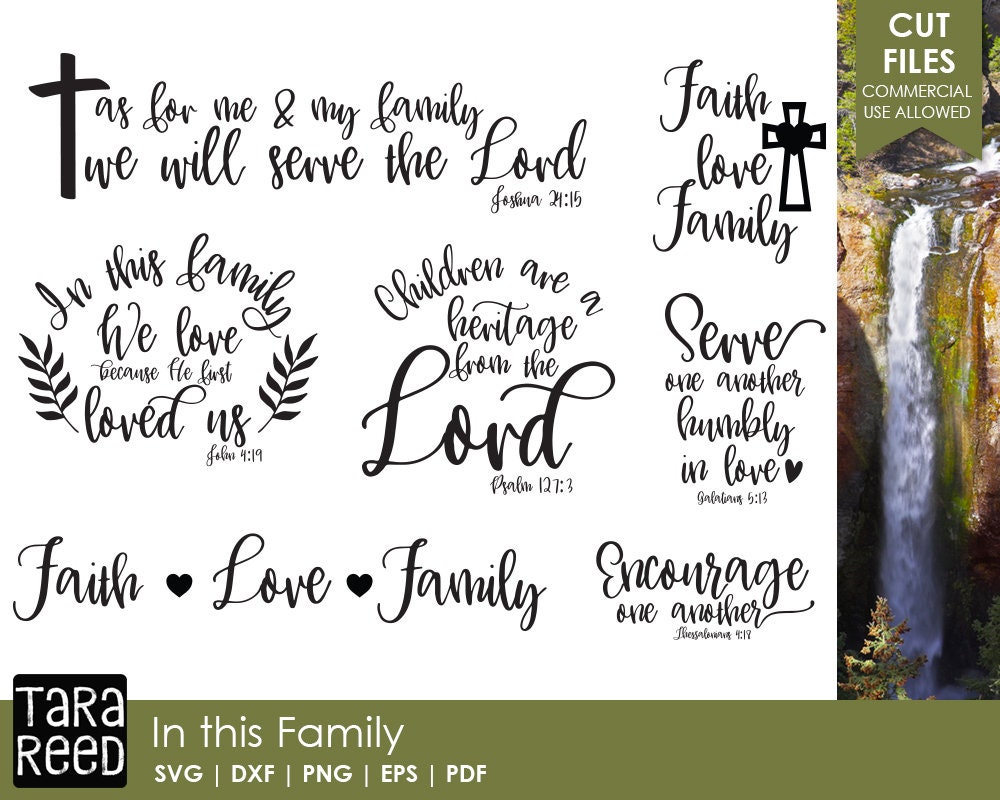 as for me & my family
we will serve the Lord
Joshua 24:15
Faith
love
Family
CUT
FILES
COMMERCIAL
USE ALLOWED
In this family
We love
because He first
loved us
John 4:19
Children are a
heritage
from the
Lord
Psalm 127:3
Serve
one another
humbly
in love
Galatians 5:13
Faith Love Family
Encourage
one another
Thessalonians 4:18
TARA
REED
In this Family
SVG | DXF | PNG | EPS | PDF